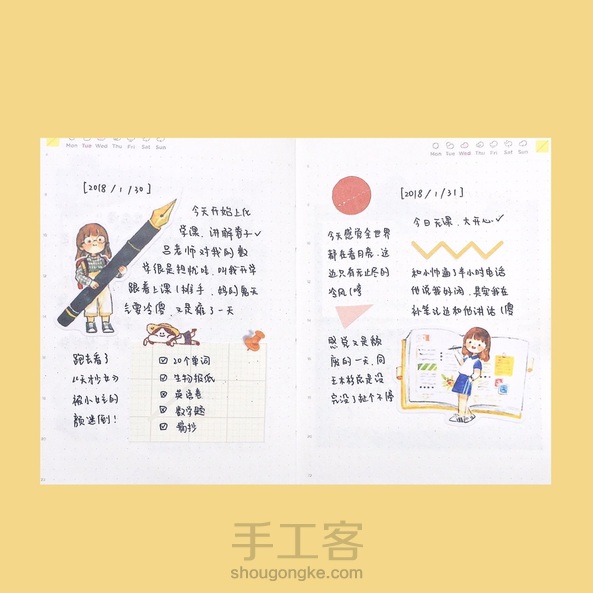 Mon Tue Wed Thu Fri Sat Sun
[2018 / 1 / 30]
今天开始上化
学课,讲解卷子✓
吕老师对我的数
学很是担忧哇,叫我开学
跟着上课(摊手,妈的鬼天
气要冷傻,又是瘫了一天
跑去看了
《天秒女》
被小女主的
颜迷倒!
☑ 20个单词
☑ 生物报纸
☑ 英语卷
☑ 数学题
☑ 易抄
Mon Tue Wed Thu Fri Sat Sun
[2018 / 1 / 31]
今日无课,大开心✓
今天感觉全世界
都在看月亮,这
边只有无止尽的
冷风(哼
和小帅逼了半小时电话
他说我好闷,其实我在
补笔记边和他讲话(傻
感觉又是颓
废的一天,同
王木杉你是设
完没了扯个不停
手工客
shougongke.com